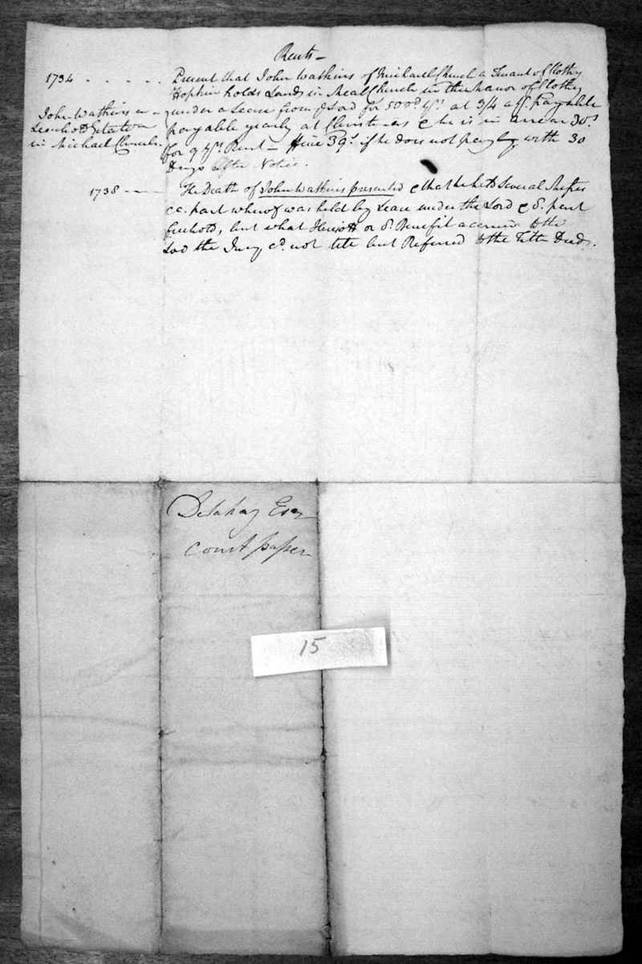 Rents -
1734 - - - - - Present that John Watkins of Michael Church a Tenant of
Hopkin holds Lands in Church in the Manor of
John Watkins a under a Lease from for 500 yrs. at 3/4 payable
Leasehold Estate payable yearly at Christmas & he is in arrear 30s.
in Michael Church for 9 yrs. Rent - 39s. if he does not pay with 30
Days after Notice.
1738 - - - The Death of John Watkins presented & that he held Several
part whereof was held by Lease under the Lord & part
freehold, but what Heriott or Benefit accrued to the
Lord the Jury not but Referred to the Title Deeds.
Delahay Esqr
Court paper
15